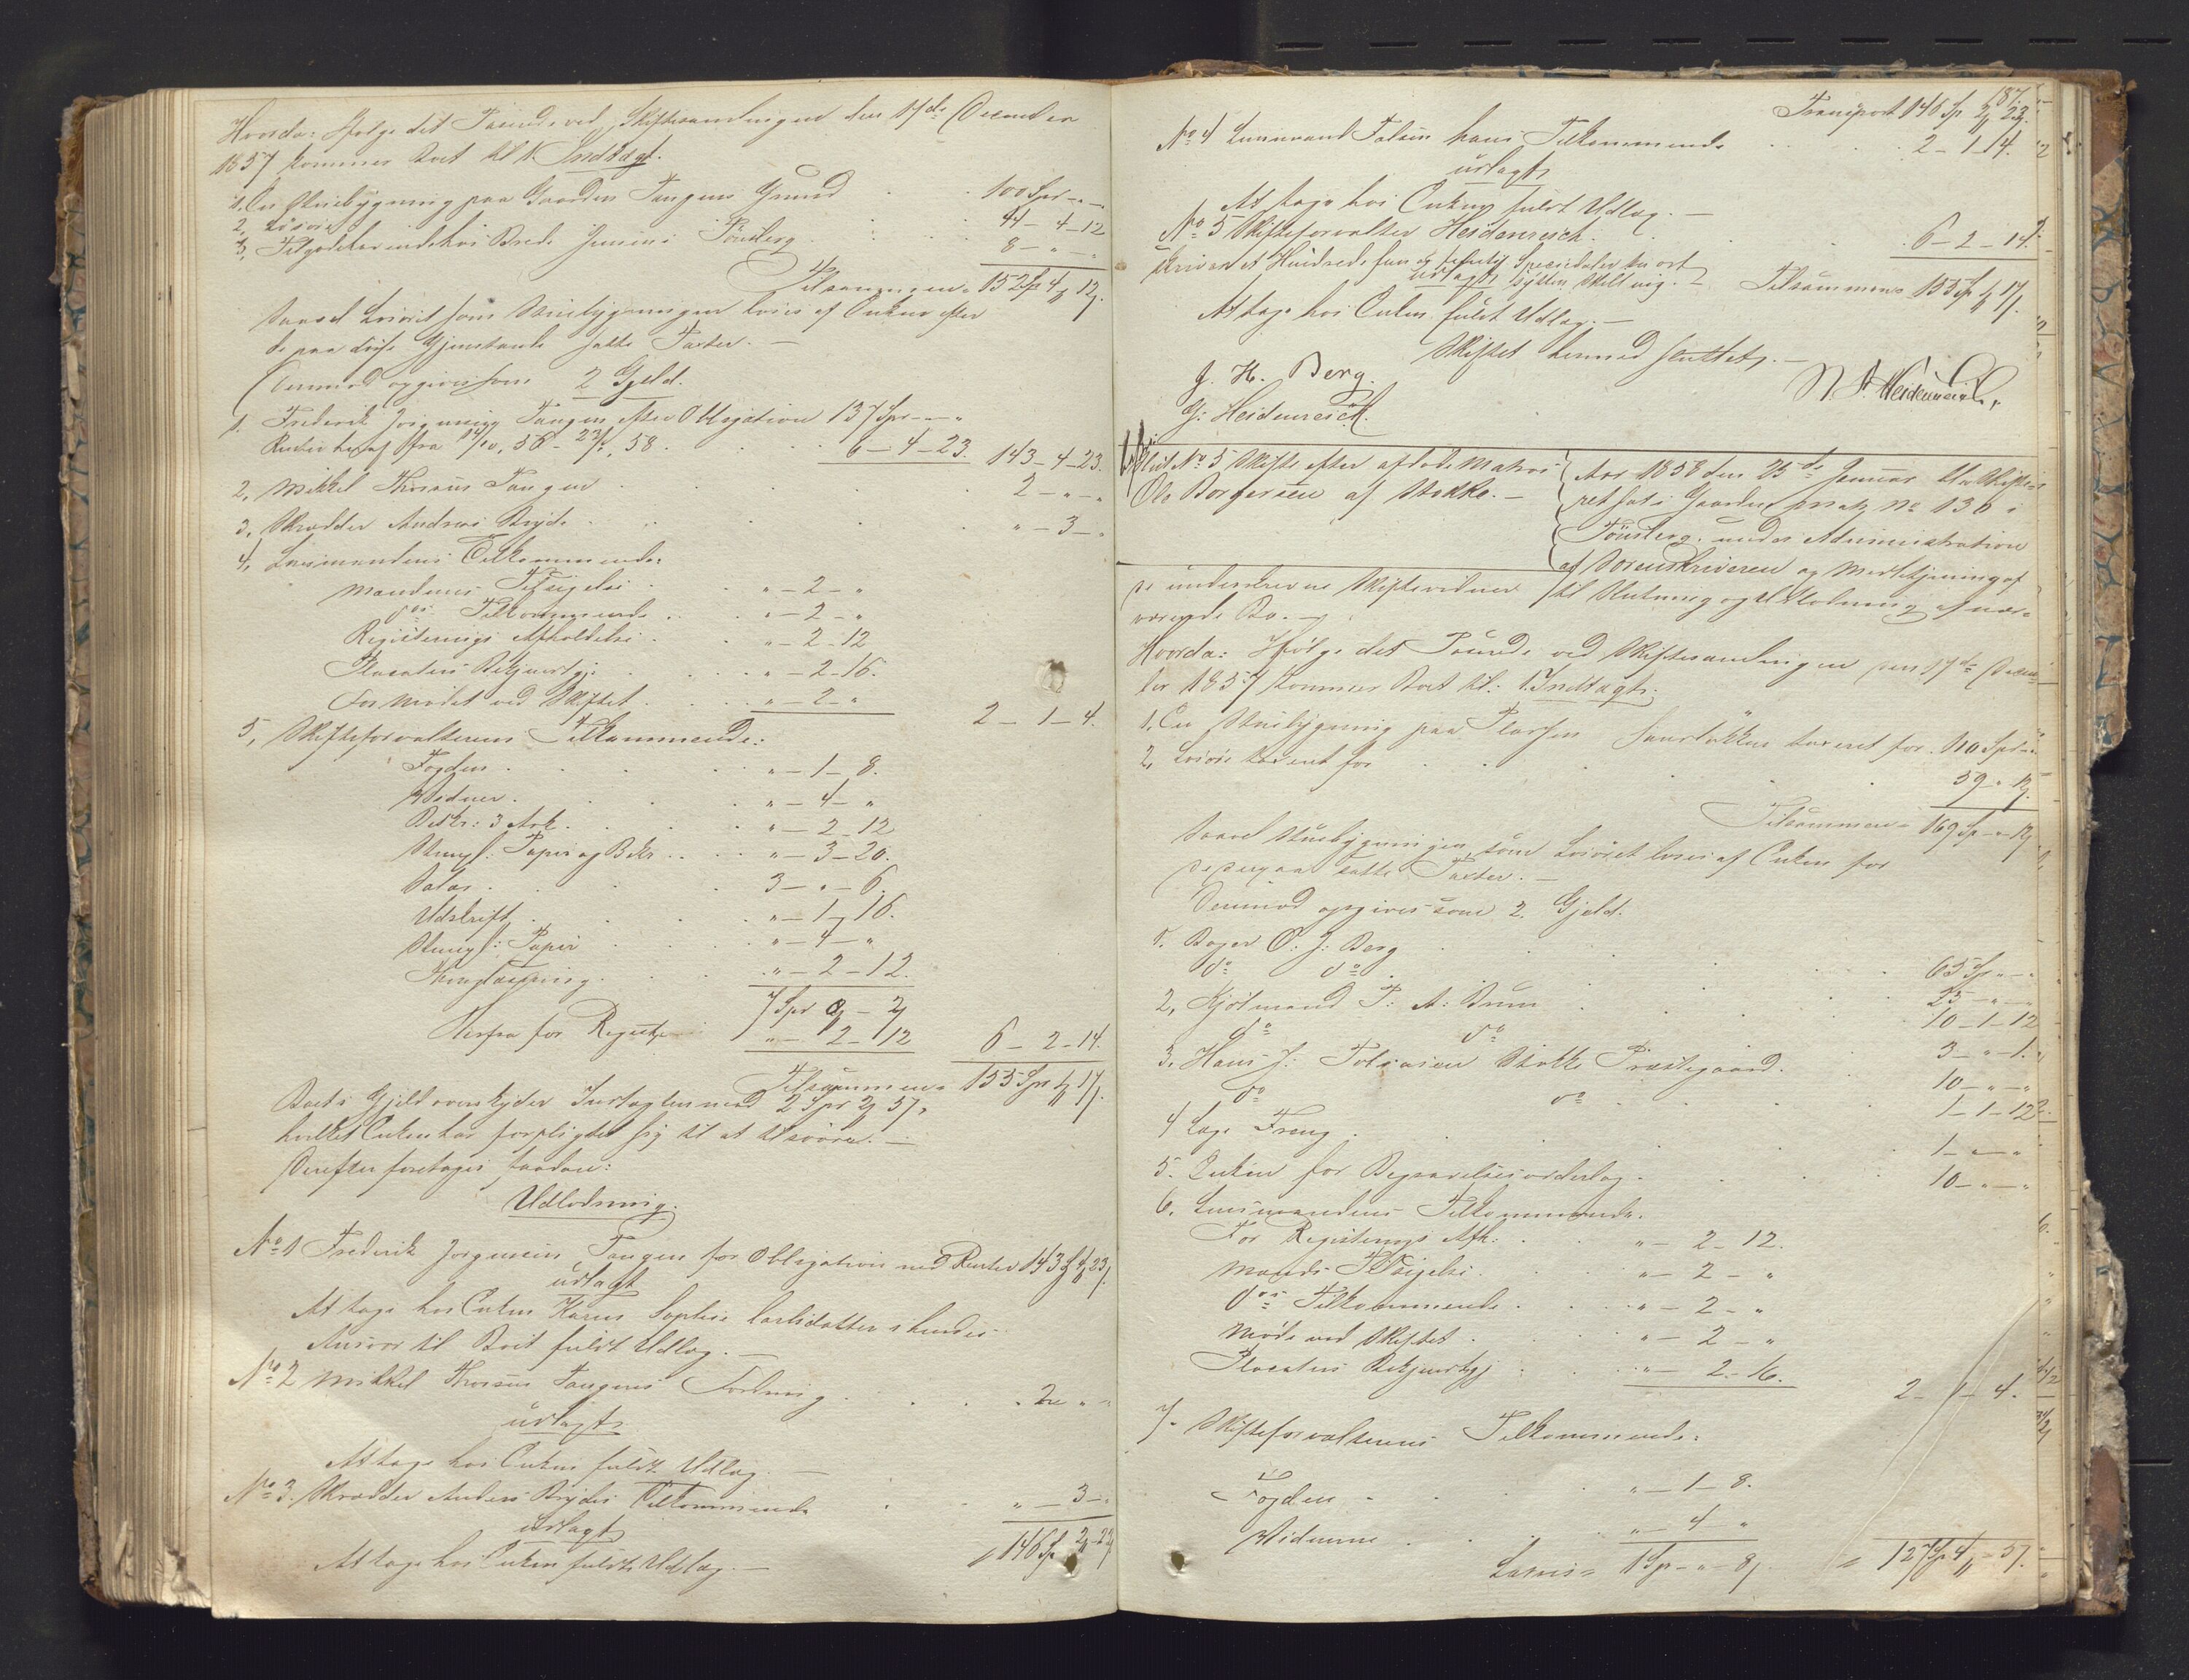 Hvorda: Ifølge det Passerede ved Skiftesamlingen den 17de December
1857 kommer Boet til 1 Indtægt.
1. En Huusbygning paa Gaarden Tangens Grund 100 Spd - " - "
2, Løsøre 44 - 4 - 12
3, Tilgodehavende hos Brede Jensen i Tönsberg 8 - " - "
Tilsammen 152 Sp 4 12
Saavel Løsøret som Huusbygningen loves af Enken efter
de paa disse Gjenstande satte Taxter. —
Derimod opgives som 2 Gjeld.
1. Frederik Jörgensen Tangen efter Obligation 137 Spd - " - "
Renter heraf fra 14/10, 56 - 23/1, 58. 6 - 4 - 23. 143 - 4 - 23.
2, Mikkel Thorsens Tangen 2 - " - "
3, Skrædder Andreas Bryde " - 3 - "
4, Lensmandens Tilkommende:
Mændenes Tilsigelse " - 2 - "
Do Tilkommende " - 2 - "
Registerings Afholdelse " - 2 - 12
Placatens Bekjentgj: " - 2 - 16.
For Mødet ved Skiftet " - 2 - " 2 - 1 - 4.
5, Skifteforvalterens Tilkommende:
Fogden " - 1 - 8.
Vidner. " - 4 - "
Beskr: 3 Ark. " - 2 - 12
Stempl: Papir og Bekr. " - 3 - 20.
Salær. 3 - " - 6.
Udskrift " - 1 - 16.
Stempl: Papir " - 4 - "
" - 2 - 12.
7 Spd - 2
Herfra for Registr " - 2 - 12 6 - 2 - 14.
Tilsammen 155 Spd 1 17
Boets Gjeld overskyder Indtægten med 2 Spd 2 5,
hvilket Enken har forpligtet sig til at tilsvare. —
Derefter foretages saadan:
Udlodning.
No 1 Frederik Jørgensen Tangen for Obligation med Renter 143 4 23
udlagt
At tage hos Enken Karen Sophie Carlsdatter i hendes
Ansvar til Boet fuldt Udlæg. —
No 2 Mikkel Thorsens Tangens Fordring 2 " "
udlagt
At tage hos Enken fuldt Udlæg. —
No 3. Skrædder Anders Brydes Tilkommende " - 3 - "
udlagt
At tage hos Enken fuldt Udlæg. — 146 Sp 2 - 23
187.
Transport 146 Sp 2 23.
No 4 Lensmand Falsen hans Tilkommende 2 - 1 - 4.
udlagt
At tage hos Enken fuldt Udlæg. —
No 5 Skifteforvalter Heidenreich. 6 - 2 - 14.
skriver et Hundrede fem og femti Speciedaler en ort Tilsammen 155 Sp 1 17
udlagt sytten Skilling. —
At tage hos Enken fuldt Udlæg. —
Skiftet hermed sluttet. —
J. H. Berg.
G: Heidenreich.
N. S. Heidenreich.
No 5 Skifte efter afdøde Matros
Ole Borgersen af Stokke. —
Aar 1858 den 25de Januar blev Skifte-
ret sat i Gaarden matr. No 136 i
Tönsberg. under Administration
af Sorenskriveren og Medbetjening af
de underskrevne Skiftevidner til Slutning og Udlodning af nær-
værende Bo. —
Hvorda: Ifølge det Passerede ved Skiftesamlingen den 17de Decem-
ber 1857 kommer Boet til: 1. Indtægt.
1. En Huusbygning paa Pladsen taxeret for 110 Spd - "
2, Løsøre taxeret for 59 - "
Tilsammen 169 Sp - "
Saavel Huusbygningen, som Løsøret loves af Enken for
de derpaa satte Taxter. —
Derimod opgives som 2. Gjeld.
1. Bager O. J: Berg 65 Sp " - "
do do 25 - " - "
2, Kjøbmand P. A: Bruun 10 - 1 - 12
do do 3 - " - 1.
3. Hans J: Tolvsen Stokke Præstegaard. 10 - " - "
do do 1 - 1 - 12
4 Lage Freng 1 - " - "
5. Enken for Begravelsesvederlag. 10 - " - "
6. Lensmandens Tilkommende.
For Registerings Afh: " - 2 - 12.
Mænds Tilsigelse " - 2 - "
Do Tilkommende " - 2 - "
Møde ved Skiftet " - 2 - "
Placatens Bekjentgj " - 2 - 16. 2 - 1 - 4.
7. Skifteforvalterens Tilkommende:
Fogden " - 1 - 8.
Vidnerne " 4 "
Lateris 1 Sp - " - 8 127 Sp 4 - 5